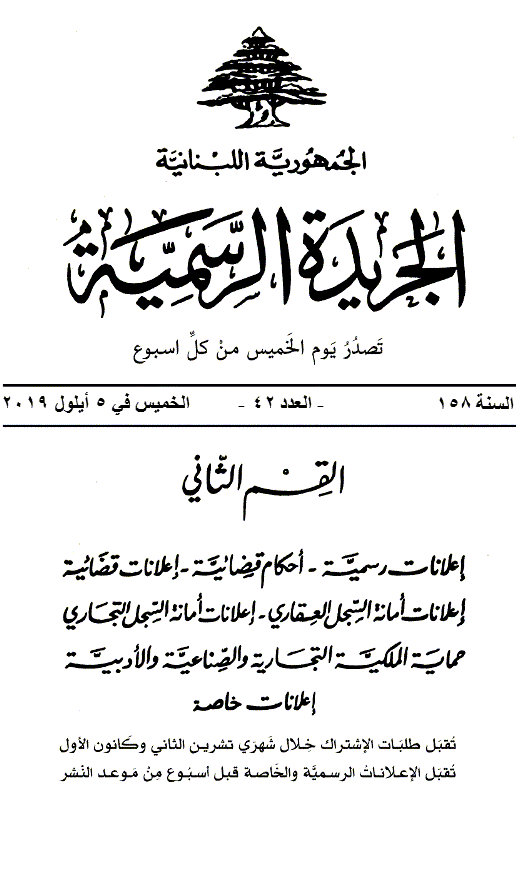 الجُمهُوريَّة اللبْنانيَّة
الجَريدَة الرسَّمِيَّة
تَصدُرُ يَوم الخَميس منْ كلِّ اسبوع
السنة ١٥٨ - العدد ٤٢ - الخميس في ٥ أيلول ٢٠١٩
القِسْم الثّاني
إعلانات رسميَّة - أحكام قضائيَّة - إعلانات قضائية
إعلانات أمانة السِّجل العقاري - إعلانات أمانة السِّجل التجاري
حماية الملكيَّة التجارية والصِّناعيَّة والأدبيَّة
إعلانات خاصة
تُقبَل طلبَات الإشتراك خِلال شَهرَي تشرين الثاني وكَانون الأول
تُقبَل الإعلاناتُ الرسميَّة والخَاصة قبل أسبُوع مِنْ مَوعد النَشر